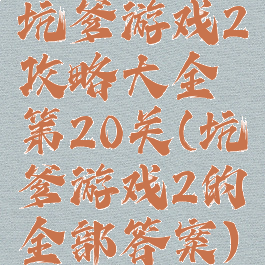 坑爹游戏2
攻略大全
第20关(坑
爹游戏2的
全部答案)